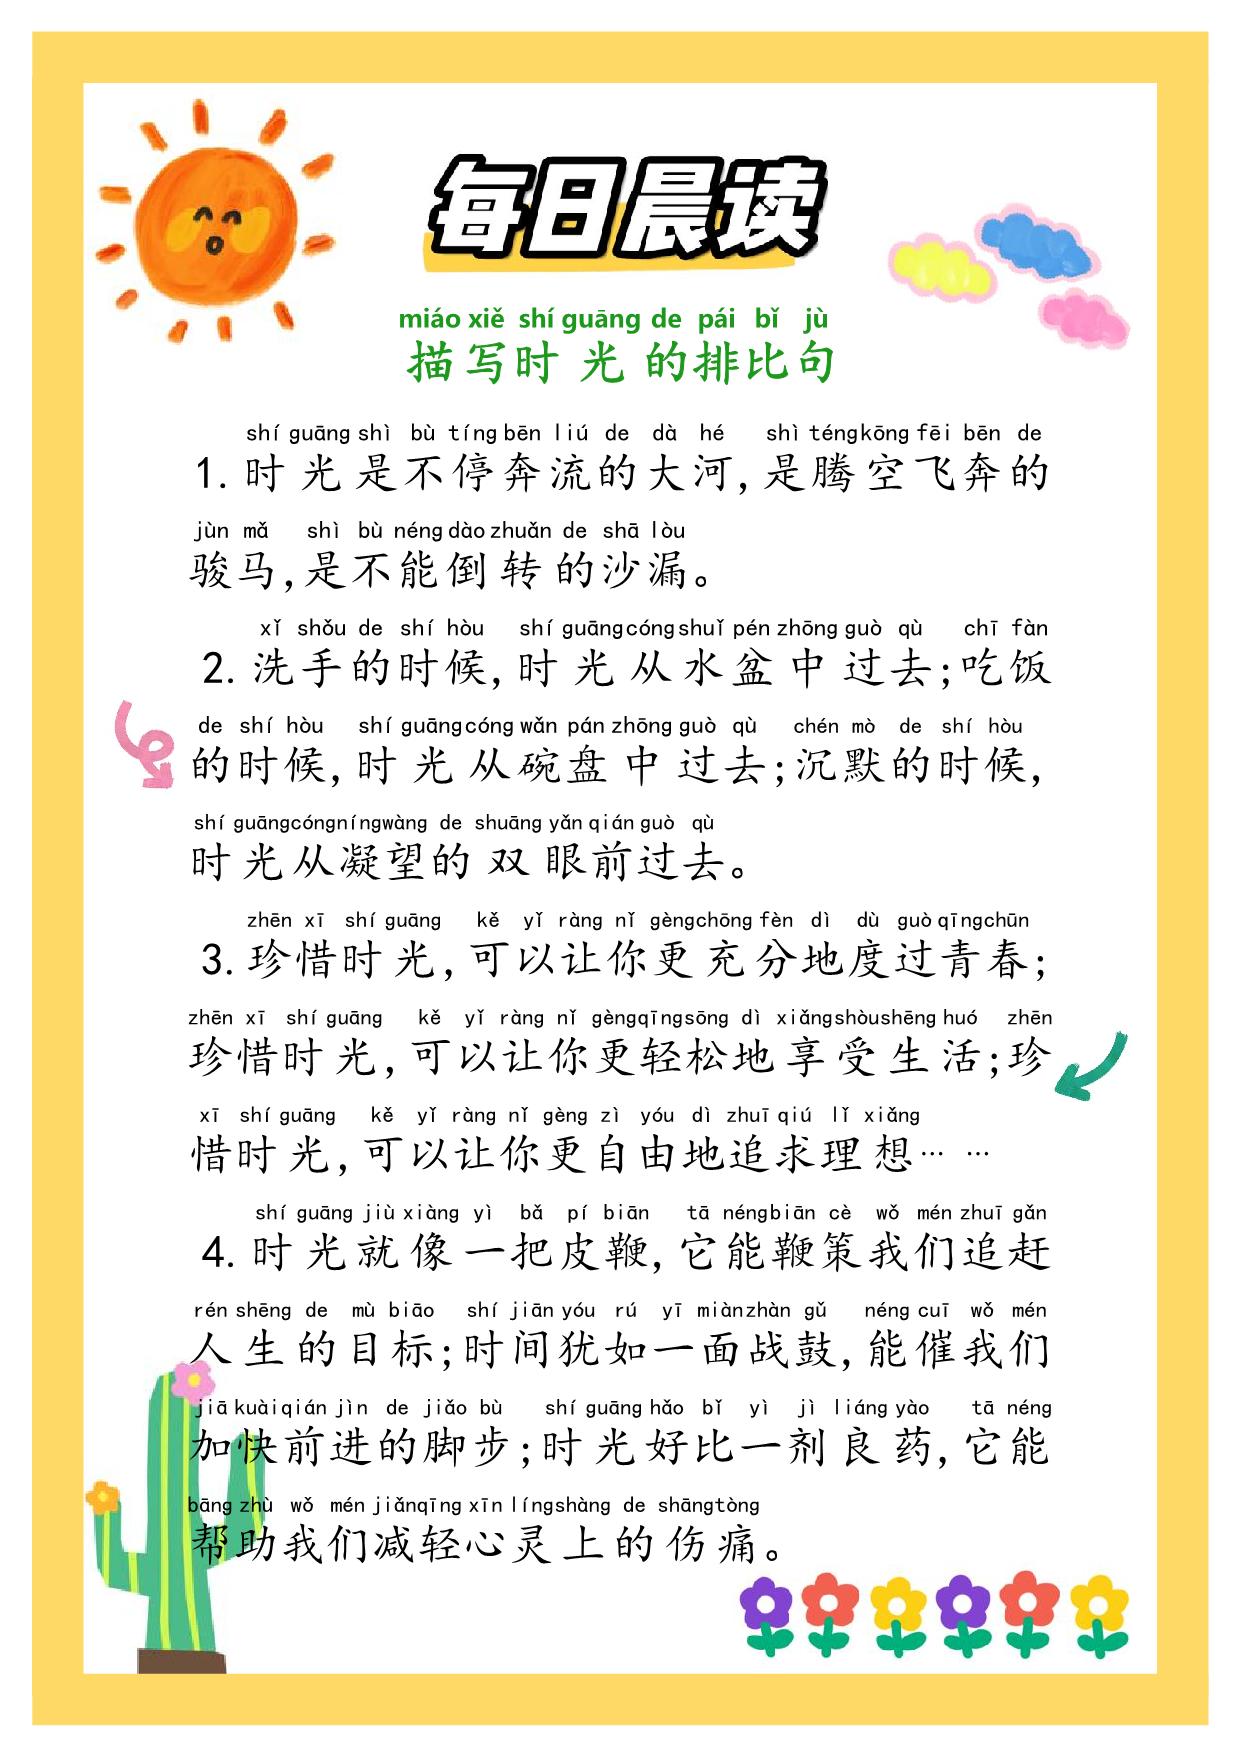 每日晨读
miáo xiě shí guāng de pái bǐ jù
描写时光的排比句
shí guāng shì bù tíng bēn liú de dà hé shì téng kōng fēi bēn de
1.时光是不停奔流的大河,是腾空飞奔的
jùn mǎ shì bù néng dào zhuǎn de shā lòu
骏马,是不能倒转的沙漏。
xǐ shǒu de shí hòu shí guāng cóng shuǐ pén zhōng guò qù chī fàn
2.洗手的时候,时光从水盆中过去;吃饭
de shí hòu shí guāng cóng wǎn pán zhōng guò qù chén mò de shí hòu
的时候,时光从碗盘中过去;沉默的时候,
shí guāng cóng níng wàng de shuāng yǎn qián guò qù
时光从凝望的双眼前过去。
zhēn xī shí guāng kě yǐ ràng nǐ gèng chōng fèn dì dù guò qīng chūn
3.珍惜时光,可以让你更充分地度过青春;
zhēn xī shí guāng kě yǐ ràng nǐ gèng qīng sōng dì xiǎng shòu shēng huó zhēn
珍惜时光,可以让你更轻松地享受生活;珍
xī shí guāng kě yǐ ràng nǐ gèng zì yóu dì zhuī qiú lǐ xiǎng
惜时光,可以让你更自由地追求理想……
shí guāng jiù xiàng yì bǎ pí biān tā néng biān cè wǒ mén zhuī gǎn
4.时光就像一把皮鞭,它能鞭策我们追赶
rén shēng de mù biāo shí jiān yóu rú yī miàn zhàn gǔ néng cuī wǒ mén
人生的目标;时间犹如一面战鼓,能催我们
jiā kuài qián jìn de jiǎo bù shí guāng hǎo bǐ yì jì liáng yào tā néng
加快前进的脚步;时光好比一剂良药,它能
bāng zhù wǒ mén jiǎn qīng xīn líng shàng de shāng tòng
帮助我们减轻心灵上的伤痛。